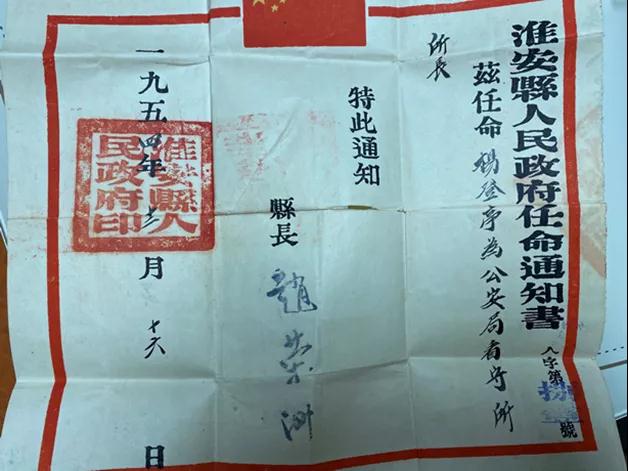 淮安縣人民政府任命通知書
人字第捌號
茲任命楊登為公安局看守所
所長
特此通知
縣長 趙
一九五四年 月十六日
淮安縣人民政府印